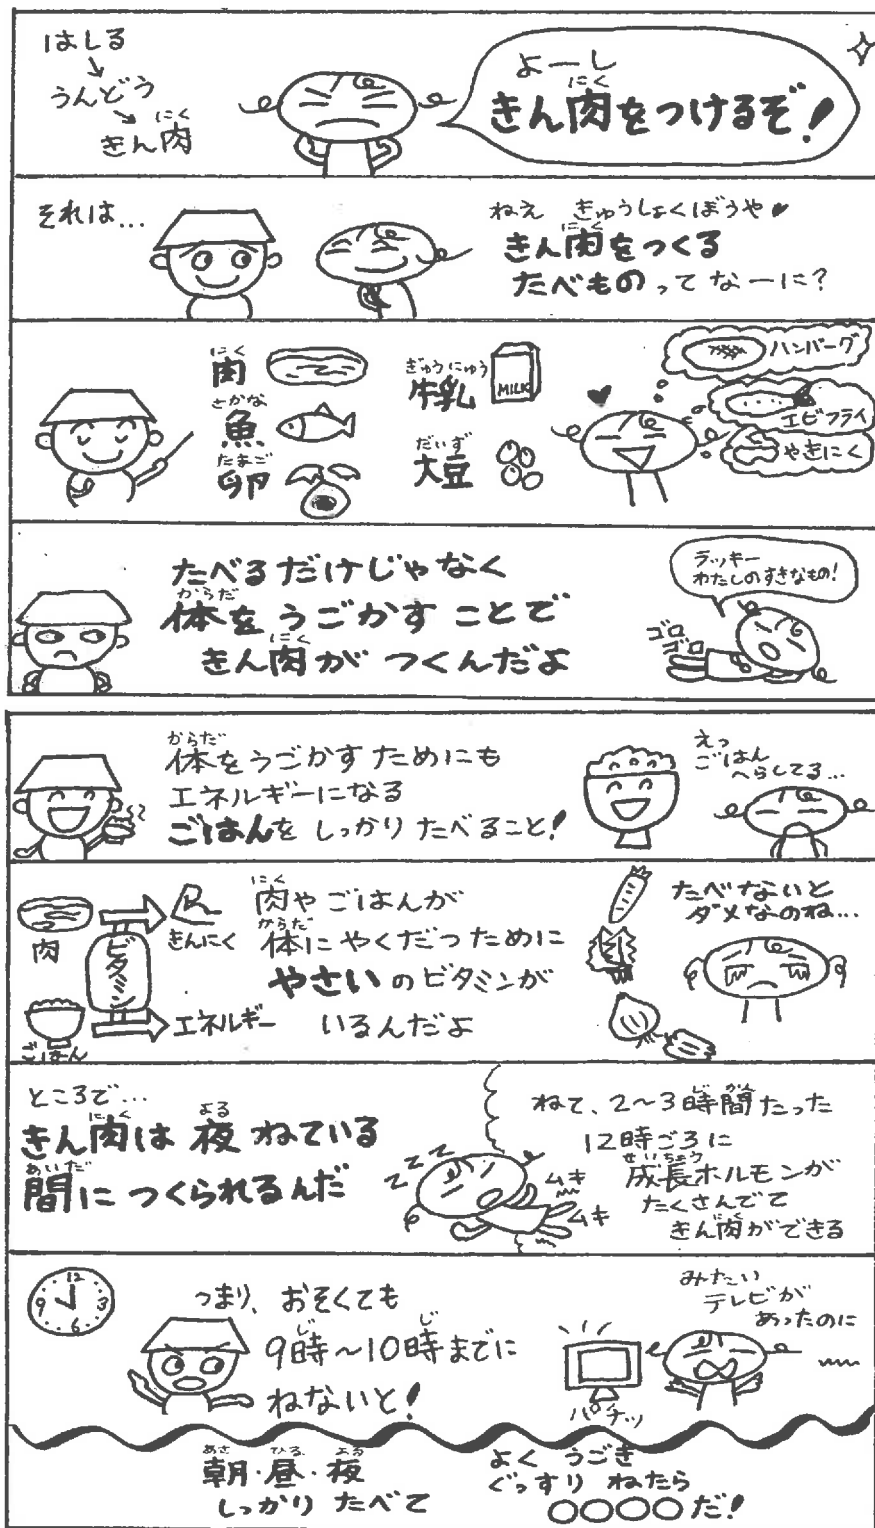 はしる
うんどう
きん肉
にく
よーし
にく
きん肉をつけるぞ!
それは…
ねえ きゅうしょくぼうや♥
にく
きん肉をつくる
たべものってなーに?
にく
肉
さかな
魚
たまご
卵
ぎゅうにゅう
牛乳
MILK
だいず
大豆
ハンバーグ
エビフライ
やきにく
たべるだけじゃなく
からだ
体をうごかすことで
にく
きん肉がつくんだよ
ラッキー
わたしのすきなもの!
ゴロ
ゴロ
からだ
体をうごかすためにも
エネルギーになる
ごはんをしっかりたべること!
えっ
ごはん
へらしてる…
肉
ごはん
ビタミン
きんにく
エネルギー
にく
肉やごはんが
からだ
体にやくだつために
やさいのビタミンが
いるんだよ
たべないと
ダメなのね…
ところで…
にく よる
きん肉は夜ねている
あいだ
間につくられるんだ
zzz
ムキ
ムキ
じかん
ねて、2~3時間たった
12時ごろに
せいちょう
成長ホルモンが
たくさんでて
にく
きん肉ができる
12
9 3
6
つまり、おそくても
じ じ
9時~10時までに
ねないと!
パチッ
みたい
テレビが
あったのに
あさ ひる よる
朝・昼・夜
しっかりたべて
よくうごき
ぐっすりねたら
○○○○だ!